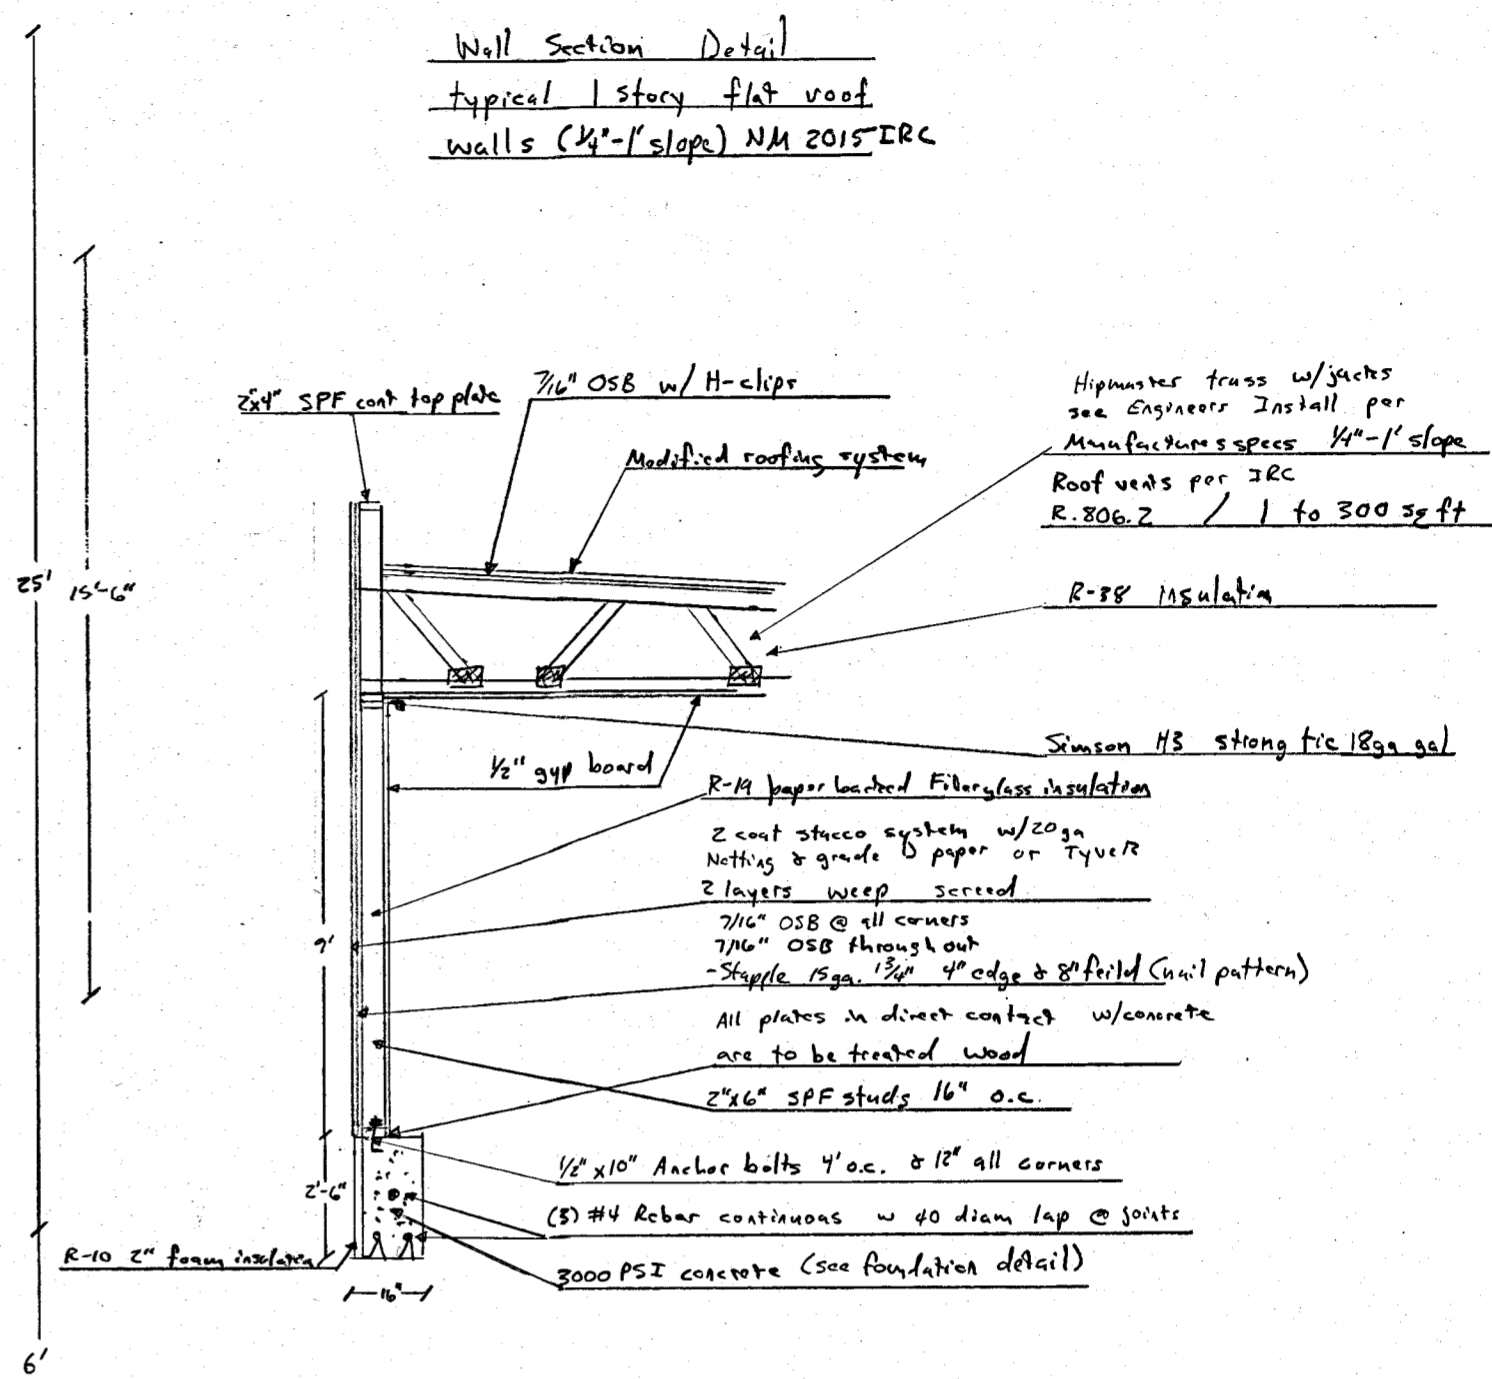 Wall Section Detail
typical 1 story flat roof
walls (1/4"-1' slope) NM 2015 IRC
2"x4" SPF cont top plate
7/16" OSB w/ H-clips
Modified roofing system
Hipmaster truss w/jacks
see Engineers Install per
Manufactures specs 1/4"-1' slope
Roof vents per IRC
R.806.2 / 1 to 300 sq ft
R-38 insulation
25'
15'-6"
Simson H3 strong tie 18ga gal
1/2" gyp board
R-19 paper backed Fiberglass insulation
2 coat stucco system w/20ga
Netting & grade D paper or Tyvek
2 layers weep screed
7/16" OSB @ all corners
7/16" OSB through out
9'
-Stapple 15ga. 1 3/4" 4" edge & 8" feild (nail pattern)
All plates in direct contact w/concrete
are to be treated wood
2"x6" SPF studs 16" o.c.
1/2" x10" Anchor bolts 4' o.c. & 12" all corners
2'-6"
(3) #4 Rebar continuous w 40 diam lap @ joints
R-10 2" foam insulation
3000 PSI concrete (see foundation detail)
16"
6'